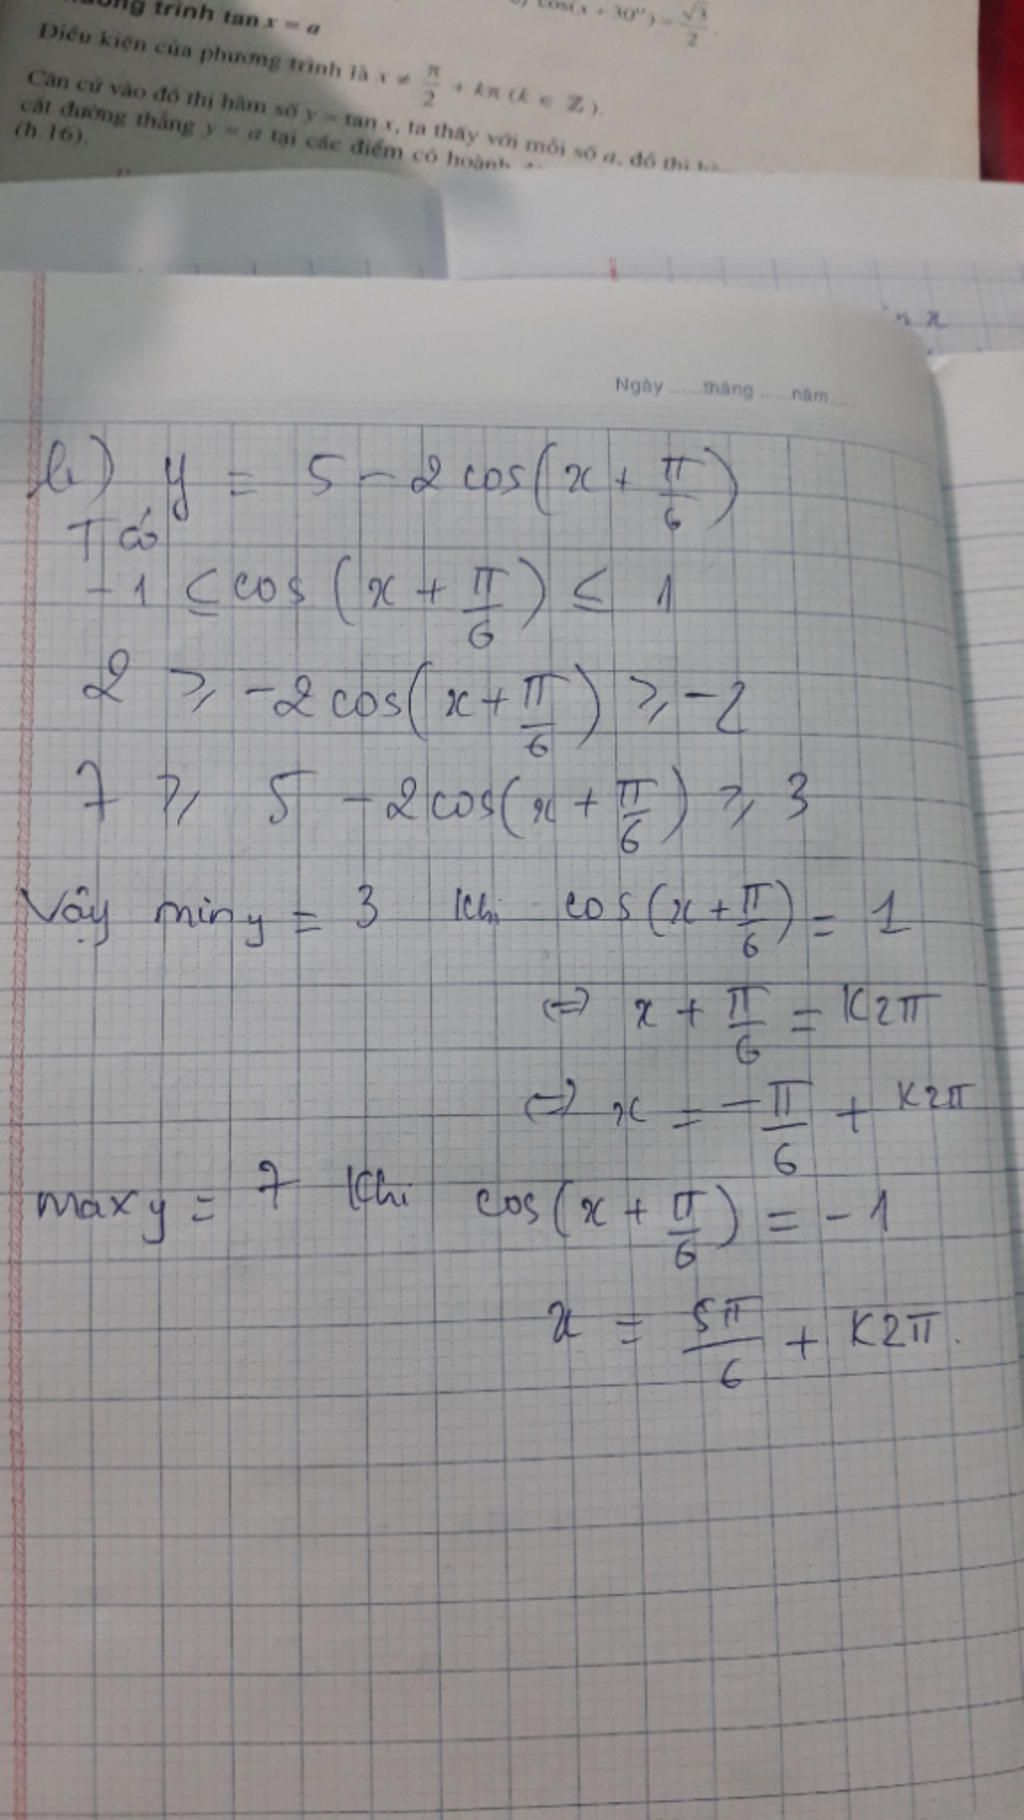 trình tan x = a
cos(x + 30°) = √3/2.
Điều kiện của phương trình là x ≠ π/2 + kπ (k ∈ ℤ).
Căn cứ vào đồ thị hàm số y = tan x, ta thấy với mỗi số a, đồ thị
cắt đường thẳng y = a tại các điểm có hoành
(h.16).
x
Ngày ......tháng ......năm.....
b) y = 5 - 2 cos(x + π/6)
T có
-1 ≤ cos (x + π/6) ≤ 1
2 ≥ -2 cos(x + π/6) ≥ -2
7 ≥ 5 - 2 cos(x + π/6) ≥ 3
Vậy min y = 3 khi cos(x + π/6) = 1
⇔ x + π/6 = K2π
⇔ x = -π/6 + K2π
max y = 7 khi cos(x + π/6) = -1
x = 5π/6 + K2π.